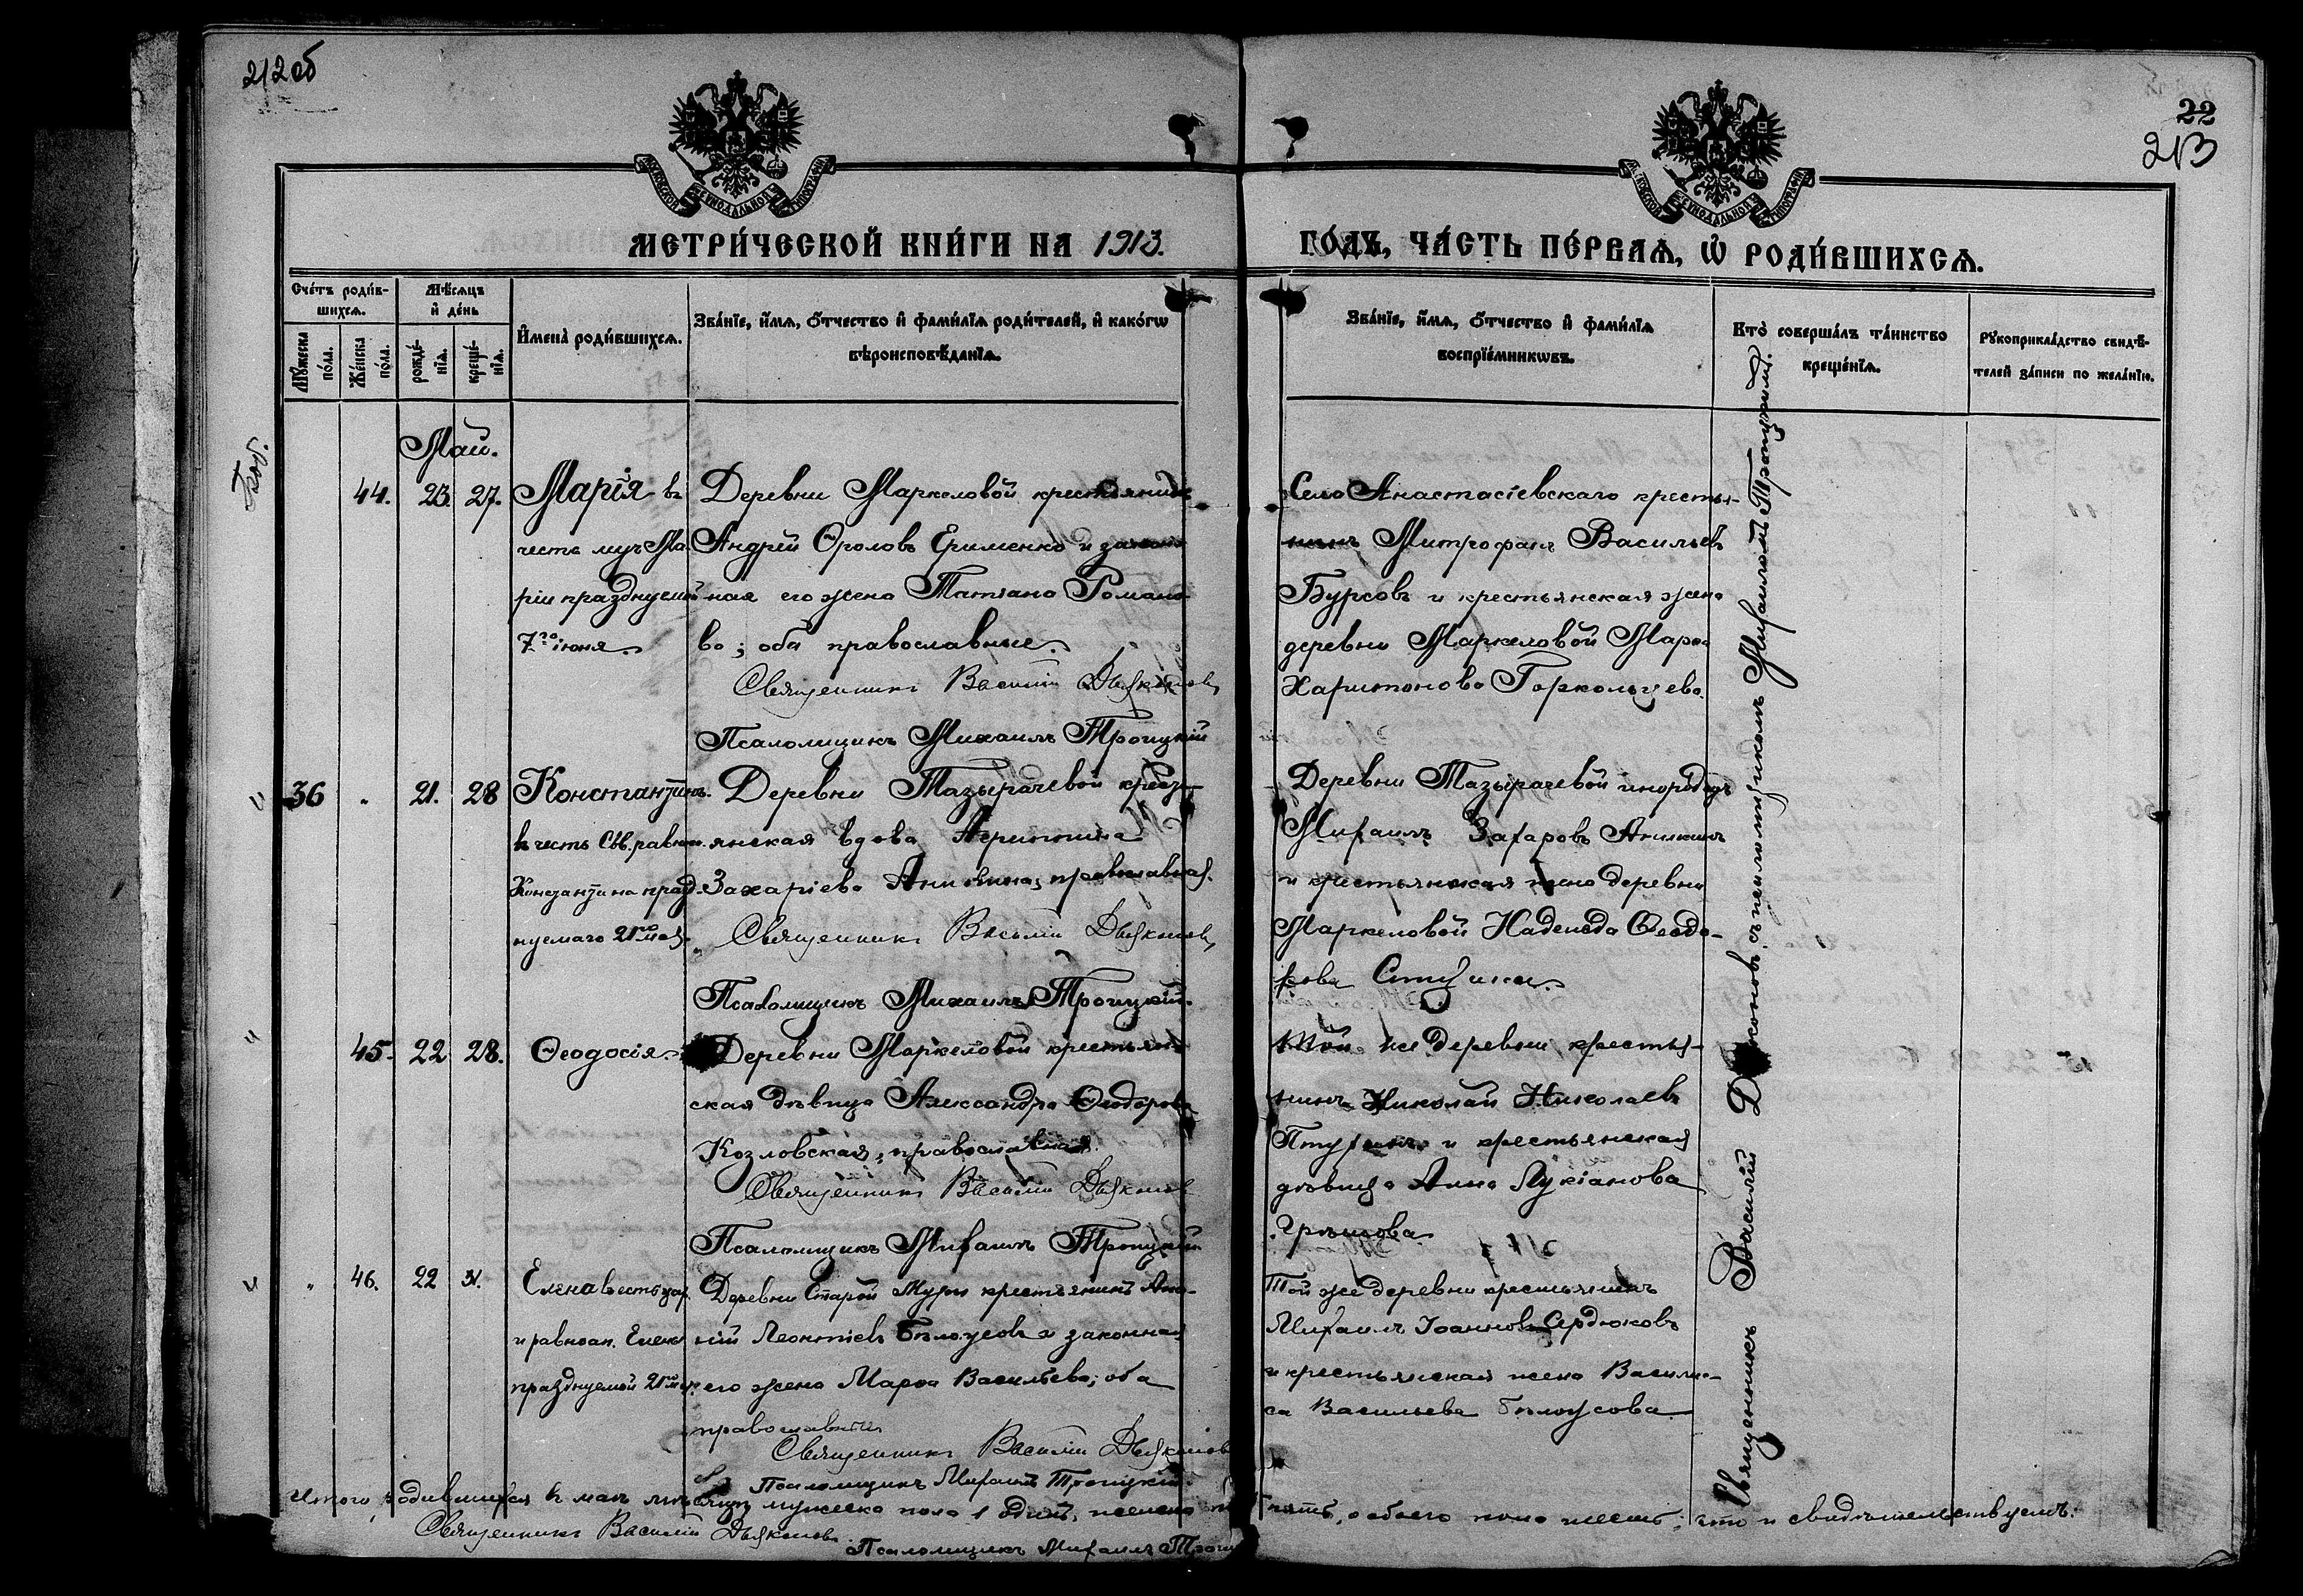 212 об
22
213
МОСКОВСКОЙ СѴНОДАЛЬНОЙ ТИПОГРАФІИ
МОСКОВСКОЙ СѴНОДАЛЬНОЙ ТИПОГРАФІИ
МЕТРИ́ЧЕСКОЙ КНИ́ГИ НА 1913.
ГО́ДЪ, ЧА́СТЬ ПЕ́РВАѦ, Ѽ РОДИ́ВШИХСѦ.
Сче́тъ роди́в-
шихсѧ.
Мꙋ́жеска по́ла.
Же́нска по́ла.
Мѣ́сѧцъ
и҆ де́нь
рожде́-
нїѧ.
креще́-
нїѧ.
И҆мена̀ роди́вшихсѧ.
Зва́нїе, и҆́мѧ, ѻ҆́тчество и҆ фами́лїѧ роди́телей, и҆ како́гѡ
вѣроисповѣ́данїѧ.
Зва́нїе, и҆́мѧ, ѻ҆́тчество и҆ фами́лїѧ
воспрїе́мникѡвъ.
Кто̀ соверша́лъ та́инство
креще́нїѧ.
Рꙋкоприкла́дство свидѣ́-
телей за́писи по жела́нїю.
Май.
44. 23. 27.
Марія въ
честь муч. Ма-
ріи празднуемой
7го іюня.
Деревни Маркеловой крестьянинъ
Андрей Ѳроловъ Ерименко и закон-
ная его жена Татіана Романо-
ва; оба православные.
Священникъ Василій Дьяконовъ
Псаломщикъ Михаилъ Троицкій
Село Анастасіевскаго кресть-
янинъ Митрофанъ Васильевъ
Бурсовъ и крестьянская жена
деревни Маркеловой Марѳа
Харитонова
36 " 21. 28
Константинъ
въ честь Св. равноап.
Константина празд-
нуемаго 21го мая.
Деревни Тазырачевой кресть-
янская вдова
Захаріева Аникина, православная.
Священникъ Василій Дьяконовъ
Псаломщикъ Михаилъ Троицкій.
Деревни Тазырачевой инородецъ
Михаилъ Захаровъ Аникинъ
и крестьянская жена деревни
Маркеловой Надежда Ѳеодо-
рова
45. 22 28.
Ѳеодосія.
Деревни Маркеловой крестьян-
ская дѣвица Александра Ѳеодорова
Козловская, православная.
Священникъ Василій Дьяконовъ
Псаломщикъ Михаилъ Троицкій
Той же деревни кресть-
янинъ Николай Николаевъ
и крестьянская
дѣвица Анна Лукіанова
" 46. 22 31.
Елена въ честь цар.
и равноап. Елены
празднуемой 21го мая.
Деревни Старой Жури крестьянинъ
Леонтіевъ Бѣлоусовъ и законная
его жена Марѳа Васильева; оба
православные
Священникъ Василій Дьяконовъ
Псаломщикъ Михаилъ Троицкій.
Той же деревни крестьянинъ
Михаилъ Іоанновъ Сердюковъ
и крестьянская жена Васили-
са Васильева Бѣлоусова.
Священникъ Василій Дьяконовъ съ псаломщикомъ Михаиломъ Троицкимъ.
Итого родившихся въ маѣ мѣсяцѣ мужеска пола 1 одинъ, женска пять, обоего пола шесть; что и свидѣтельствуемъ:
Священникъ Василій Дьяконовъ
Псаломщикъ Михаилъ